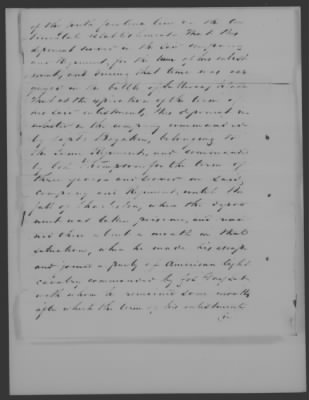 of the South Carolina line on the Con
tinental Establishment. That this
deponent served in the said company
and Regiment, for the time of his enlist
ment, and during that time was en
gaged in the battle of
that at the expiration of the term of
his said enlistment, this deponent en
listed in the company commanded
by Capt. belonging to
the same Regiment, and commanded
by Col. Thompson for the term of
three years and served in said
company and Regiment, until the
fall of Charleston, when the depo
nent was taken prisoner, and was
about a month in that
situation, when he made his escape
and joined a party of American light
cavalry commanded by
with whom he remained some months
after which the term of his enlistment